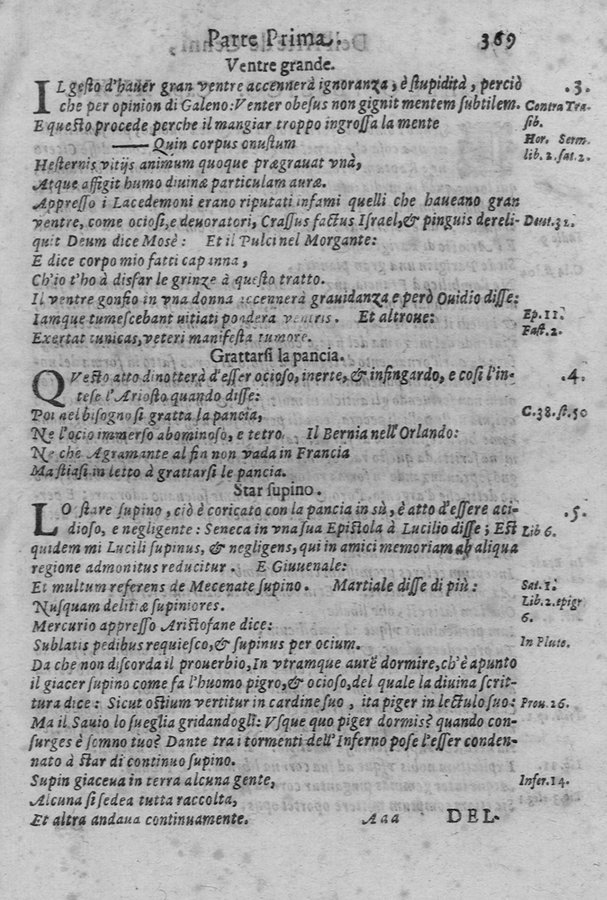 Parte Prima. 369
Ventre grande.
IL gesto d'hauer gran ventre accennerà ignoranza, è stupidità, perciò .3.
che per opinion di Galeno: Venter obesus non gignit mentem subtilem. Contra Tra-
E questo procede perche il mangiar troppo ingrossa la mente sib.
—— Quin corpus onustum Hor. Serm.
Hesternis vitijs animum quoque prægrauat vnà, lib. 2. sat. 2.
Atque affigit humo diuinæ particulam auræ.
Appresso i Lacedemoni erano riputati infami quelli che haueano gran
ventre, come ociosi, e deuoratori, Crassus factus Israel, & pinguis dereli- Deut. 32.
quit Deum dice Mosè: Et il Pulci nel Morgante:
E dice corpo mio fatti capanna,
Ch'io t'ho à disfar le grinze à questo tratto.
Il ventre gonfio in vna donna accennerà grauidanza e però Ouidio disse:
Iamque tumescebant uitiati pondera ventris. Et altroue: Ep. 11.
Exertat tunicas, veteri manifesta tumore. Fast. 2.
Grattarsi la pancia.
QVesto atto dinotterà d'esser ocioso, inerte, & infingardo, e così l'in- .4.
tese l'Ariosto quando disse:
Poi nel bisogno si gratta la pancia, C. 38. st. 50
Ne l'ocio immerso abominoso, e tetro. Il Bernia nell'Orlando:
Ne che Agramante al fin non vada in Francia
Ma stiasi in letto à grattarsi le pancia.
Star supino.
LO stare supino, ciò è coricato con la pancia in sù, è atto d'essere aci- .5.
dioso, e negligente: Seneca in vna sua Epistola à Lucilio disse; Est Lib 6.
quidem mi Lucili supinus, & negligens, qui in amici memoriam ab aliqua
regione admonitus reducitur. E Giuuenale:
Et multum referens de Mecenate supino. Martiale disse di più: Sat. 1.
Nusquam delitiæ supiniores. Lib. 2. epigr
Mercurio appresso Aristofane dice: 6.
Sublatis pedibus requiesco, & supinus per ocium. In Pluto.
Da che non discorda il prouerbio, In vtramque aurẽ dormire, ch'è apunto
il giacer supino come fa l'huomo pigro, & ocioso, del quale la diuina scrit-
tura dice: Sicut ostium vertitur in cardine suo, ita piger in lectulo suo: Prou. 26.
Ma il Sauio lo sueglia gridandogli: Vsque quo piger dormis? quando con-
surges è somno tuo? Dante tra i tormenti dell'Inferno pose l'esser conden-
nato à star di continuo supino.
Supin giaceua in terra alcuna gente, Infer. 14.
Alcuna si sedea tutta raccolta,
Et altra andaua continuamente. Aaa DEL-